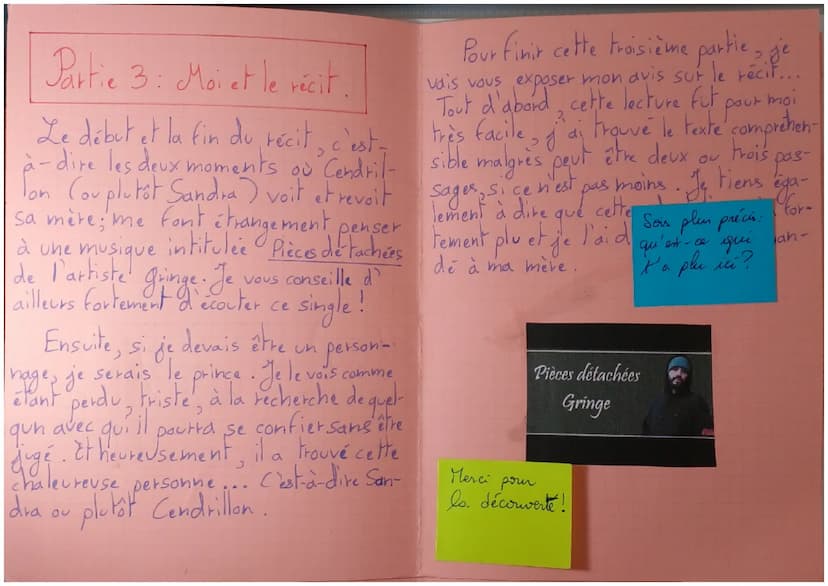 Partie 3 : Moi et le récit.
Le début et la fin du récit, c'est-
à-dire les deux moments où Cendril-
lon (ou plutôt Sandra) voit et revoit
sa mère; me font étrangement penser
à une musique intitulée Pièces détachées
de l'artiste Gringe. Je vous conseille d'
ailleurs fortement d'écouter ce single !
Ensuite, si je devais être un person-
nage, je serais le prince. Je le vois comme
étant perdu, triste, à la recherche de quel-
qun avec qui il pourra se confier sans être
jugé. Et heureusement, il a trouvé cette
chaleureuse personne... C'est-à-dire San-
dra ou plutôt Cendrillon.
Pour finir cette troisième partie, je
vais vous exposer mon avis sur le récit...
Tout d'abord, cette lecture fut pour moi
très facile, j'ai trouvé le texte compréhen-
sible malgrès peut être deux ou trois pas-
sages, si ce n'est pas moins. Je tiens éga-
lement à dire que cette for-
tement plu et je l'ai man-
dé à ma mère.
Sois plus précis:
qu'est-ce qui
t'a plu ici?
Pièces détachées
Gringe
Merci pour
la découverte!